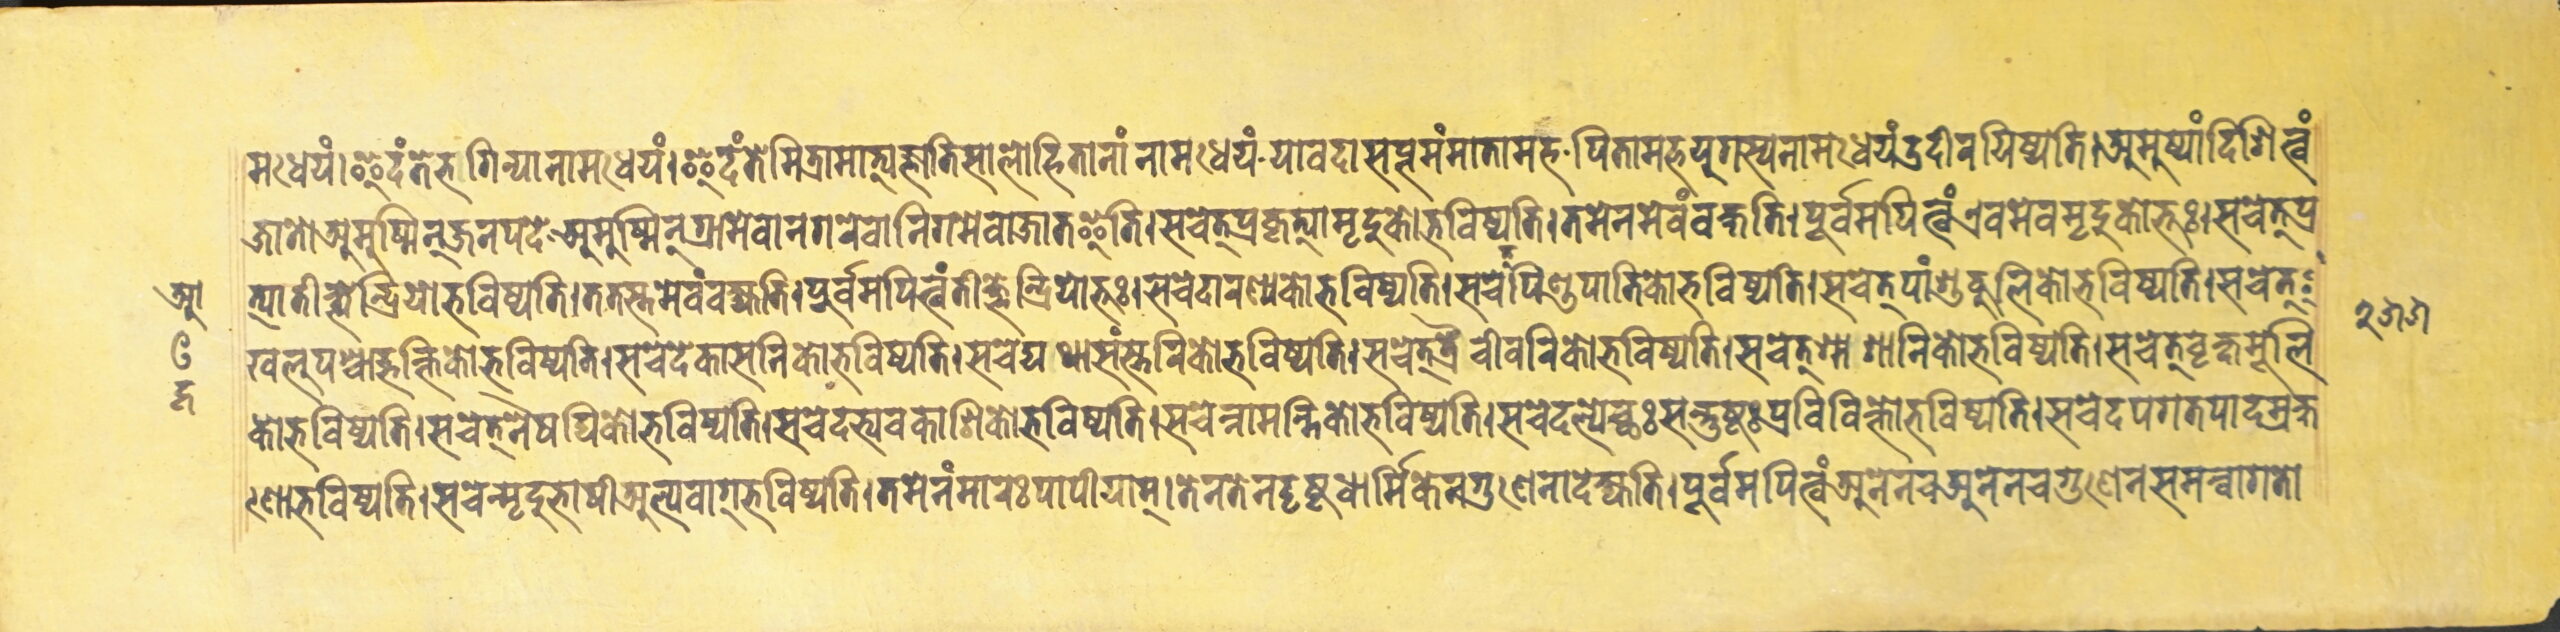 मधेयं।इदंतेभगिन्यानामधेयं।इदंतेमित्रामात्यज्ञातिसालोहितानांनामधेयं·यावदासप्तमंमातामह·पितामहयुगस्यनामधेयंउदीरयिष्यति।अमुष्यांदिशित्वं
जातोअमुष्मिन्जनपदे·अमुष्मिन्ग्रामेवानगरेवानिगमेवाजातइति।सचेत्प्रकृत्यामृदुकोभविष्यति।तमेनमेवंवक्षति।पूर्वमपित्वंएवमेवमृदुकोभूः।सचेत्प्र
त्यातीक्ष्णेन्द्रियोभविष्यति।ततस्तमेवंवक्ष्यति।पूर्वमपित्वंतीक्ष्णेन्द्रियोभूः।सचेदारण्यकोभविष्यति।सचेपिण्डपातिकोभविष्यति।सचेत्पांशुकूलिकोभविष्यति।सचेत्
खलुपश्चाद्भक्तिकोभविष्यति।सचेदेकासनिकोभविष्यति।सचेद्यथासंस्तरिकोभविष्यति।सचेत्त्रैचीवरिकोभविष्यति।सचेत्श्माशानिकोभविष्यति।सचेत्वृक्षमूलि
कोभविष्यति।सचेत्नैषद्यिकोभविष्यति।सचेदभ्यवकाशिकोभविष्यति।सचेन्नामन्तिकोभविष्यति।सचेदल्पेच्छःसन्तुष्टःप्रविविक्तोभविष्यति।सचेदपगतपादम्रक्ष
णोभविष्यति।सचेन्मृदुभाषीअल्पवाग्भविष्यति।तमेनंमारःपापीयाम्।तेनतेनदृष्टधार्मिकेनगुणेनादेक्ष्यति।पूर्वमपित्वंअनेनचअनेनचगुणेनसमन्वागतो
आ
२११